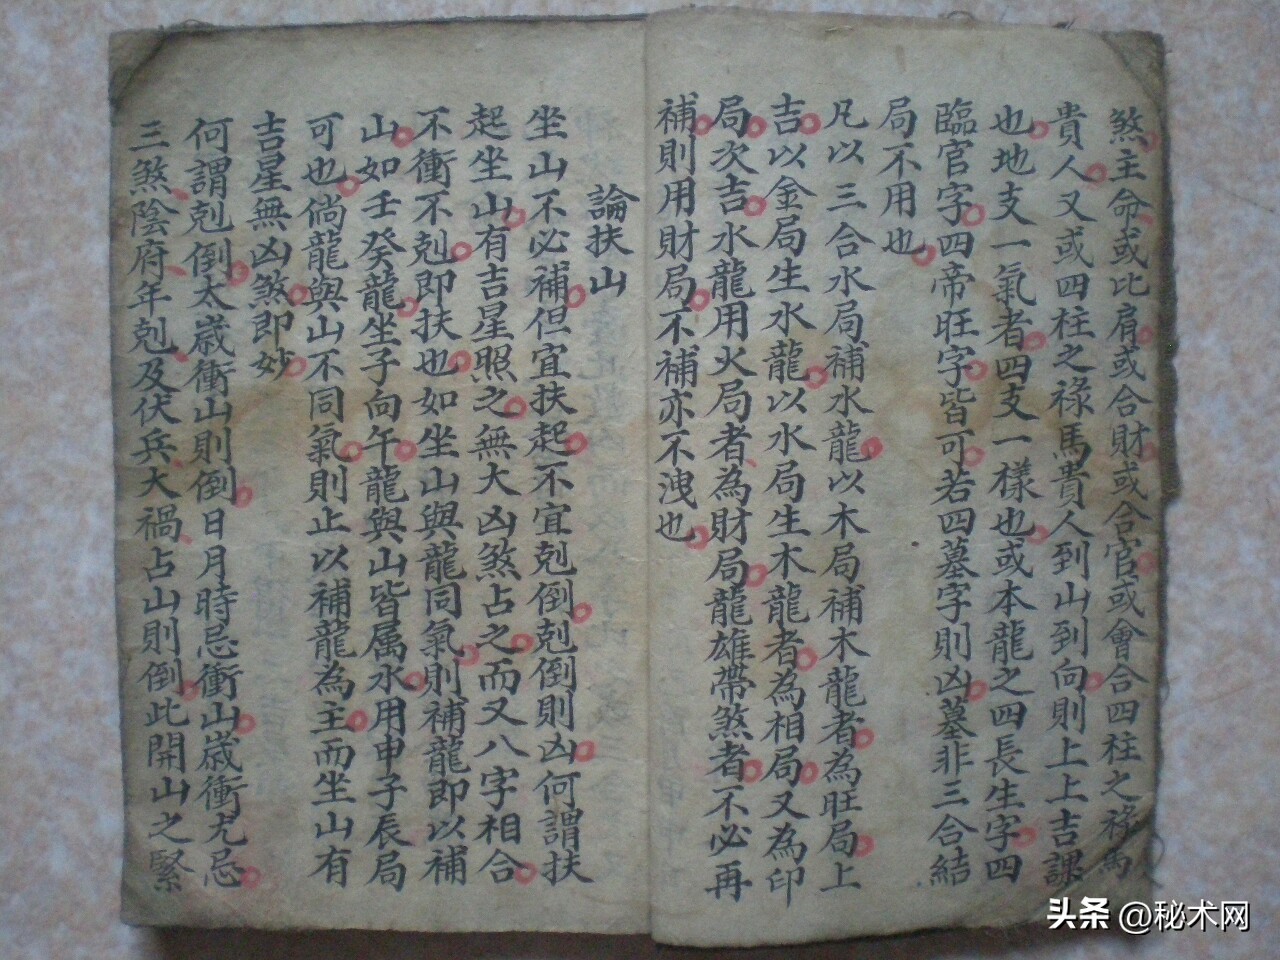 煞主命或比肩或合財或合官或會合四柱之祿馬
貴人又或四柱之祿馬貴人到山到向則上上吉課
也地支一氣者四支一樣也或本龍之四長生字四
臨官字四帝旺字皆可若四墓字則凶墓非三合結
局不用也
凡以三合水局補水龍以木局補木龍者為旺局上
吉以金局生水龍以水局生木龍者為相局又為印
局次吉水龍用火局者為財局龍雄帶煞者不必再
補則用財局不補亦不洩也
論扶山
坐山不必補但宜扶起不宜剋倒剋倒則凶何謂扶
起坐山有吉星照之無大凶煞占之而又八字相合
不衝不剋即扶也如坐山與龍同氣則補龍即以補
山如壬癸龍坐子向午龍與山皆属水用申子辰局
可也倘龍與山不同氣則止以補龍為主而坐山有
吉星無凶煞即妙
何謂剋倒太歲衝山則倒日月時忌衝山歲衝尤忌
三煞陰府年剋及伏兵大禍占山則倒此開山之緊
头条 @秘术网